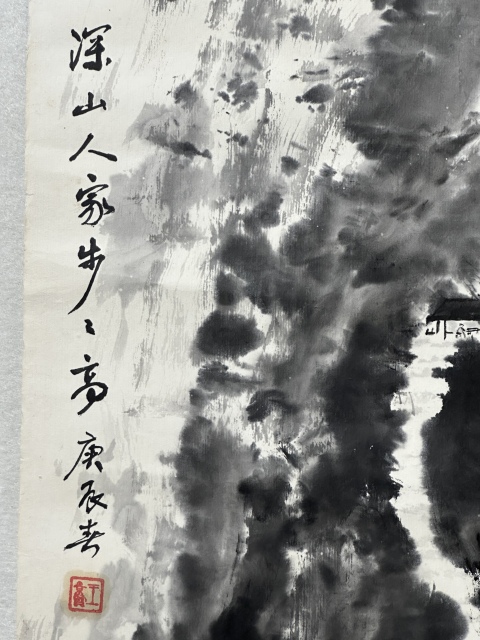 深山人家步〻高
庚辰春